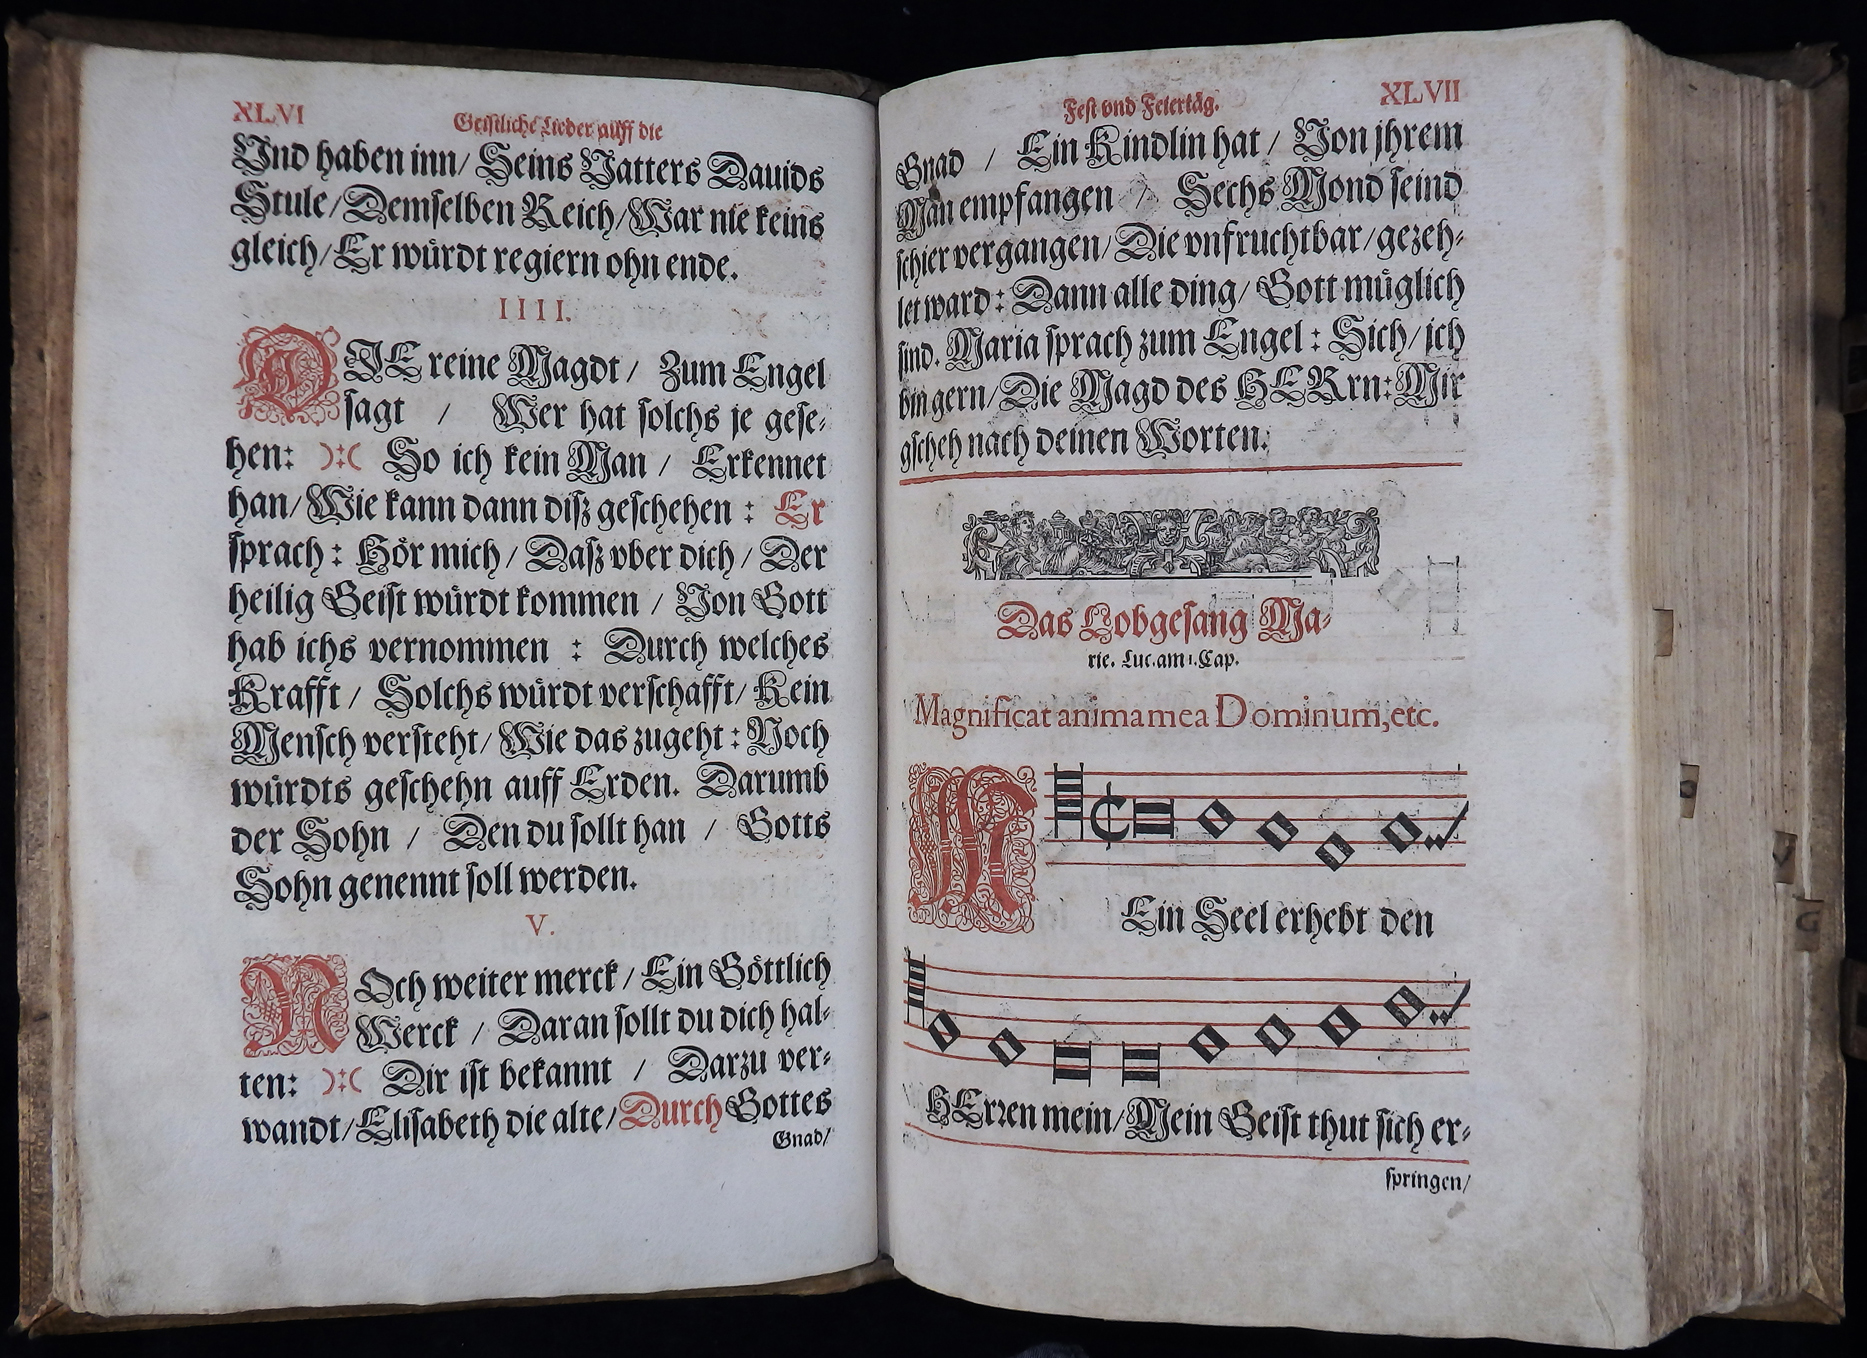 XLVI
Geistliche Lieder auff die
Vnd haben inn/ Seins Vatters Dauids
Stule/Demſelben Reich/War nie keins
gleich/Er wuͤrdt regiern ohn ende.
IIII.
DIE reine Magdt/ Zum Engel
ſagt / Wer hat ſolchs je geſe-
hen: ):( So ich kein Man / Erkennet
han/Wie kann dann diſz geſchehen : Er
ſprach : Hoͤr mich / Daſz vber dich / Der
heilig Geiſt wuͤrdt kommen / Von Gott
hab ichs vernommen : Durch welches
Krafft / Solchs wuͤrdt verſchafft/ Kein
Menſch verſteht/ Wie das zugeht : Noch
wuͤrdts geſchehn auff Erden. Darumb
der Sohn / Den du ſollt han / Gotts
Sohn genennt ſoll werden.
V.
NOch weiter merck / Ein Goͤttlich
Werck / Daran ſollt du dich hal-
ten: ):( Dir iſt bekannt / Darzu ver-
wandt/Eliſabeth die alte/Durch Gottes
Gnad/
Feſt vnd Feiertaͤg.
XLVII
Gnad / Ein Kindlin hat / Von jhrem
Man empfangen / Sechs Mond ſeind
ſchier vergangen/Die vnfruchtbar/gezeh-
let ward : Dann alle ding/ Gott muͤglich
ſind. Maria ſprach zum Engel : Sich/ ich
bin gern/Die Magd des HERrn: Mir
gſcheh nach deinen Worten.
Das Lobgeſang Ma-
rie. Luc. am 1. Cap.
Magnificat anima mea Dominum, etc.
MEin Seel erhebt den
HErren mein/Mein Geiſt thut ſich er-
ſpringen/